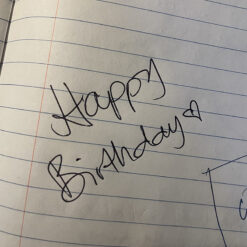 Happy
Birthday♡